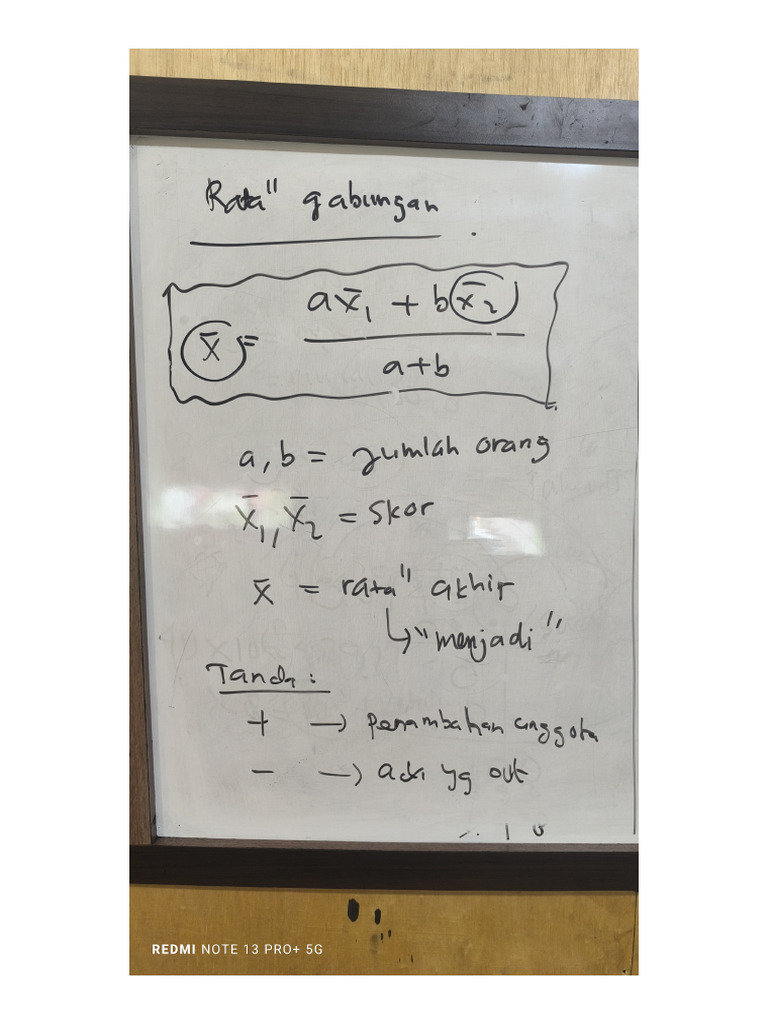 Rata" gabungan
x̄ = (a x̄₁ + b x̄₂) / (a+b)
a, b = jumlah orang
x̄₁, x̄₂ = Skor
x̄ = rata" akhir
↳ "menjadi"
Tanda :
+ → penambahan anggota
- → ada yg out
REDMI NOTE 13 PRO+ 5G